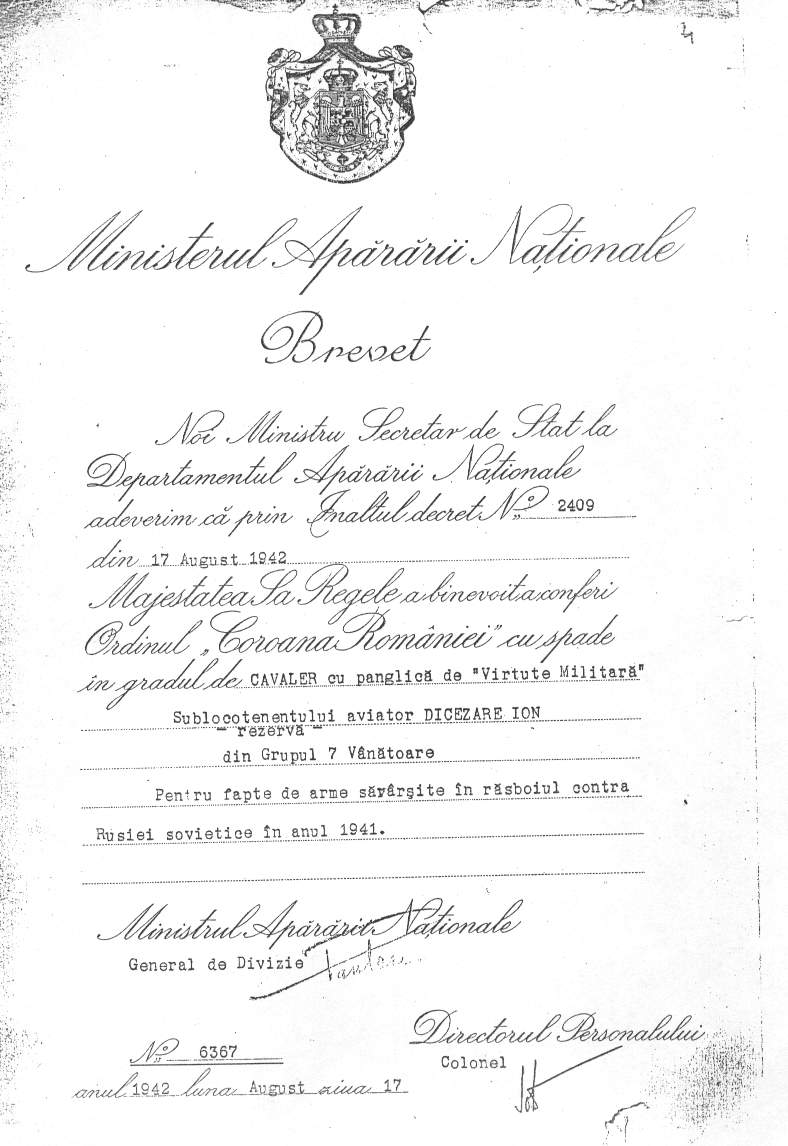 Ministerul Apărării Naționale
Brevet
Noi Ministru Secretar de Stat la
Departamentul Apărării Naționale
adeverim că prin Inaltul decret No 2409
din 17 August 1942
Majestatea Sa Regele a binevoit a conferi
Ordinul „Coroana României” cu spade
în gradul de CAVALER cu panglică de "Virtute Militară"
Sublocotenentului aviator DICEZARE ION
- rezervă -
din Grupul 7 Vânătoare
Pentru fapte de arme săvârșite în răsboiul contra
Rusiei sovietice în anul 1941.
Ministrul Apărării Naționale
General de Divizie
Directorul Personalului
Colonel
No 6367
anul 1942 luna August ziua 17